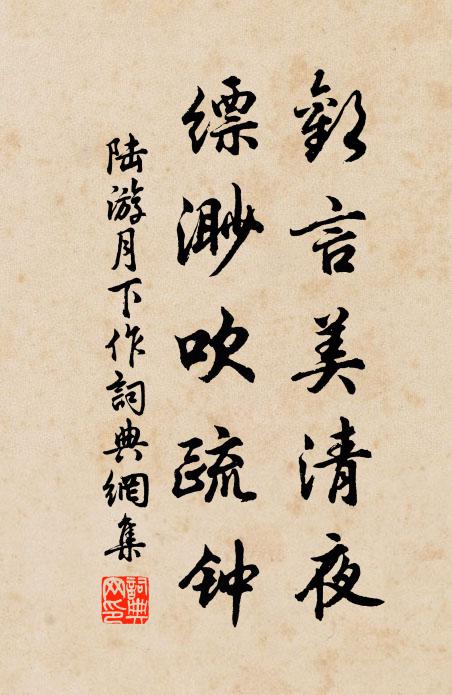 歡言美清夜
缥渺吹疏钟
陆游月下作詞典網集
詞典网印